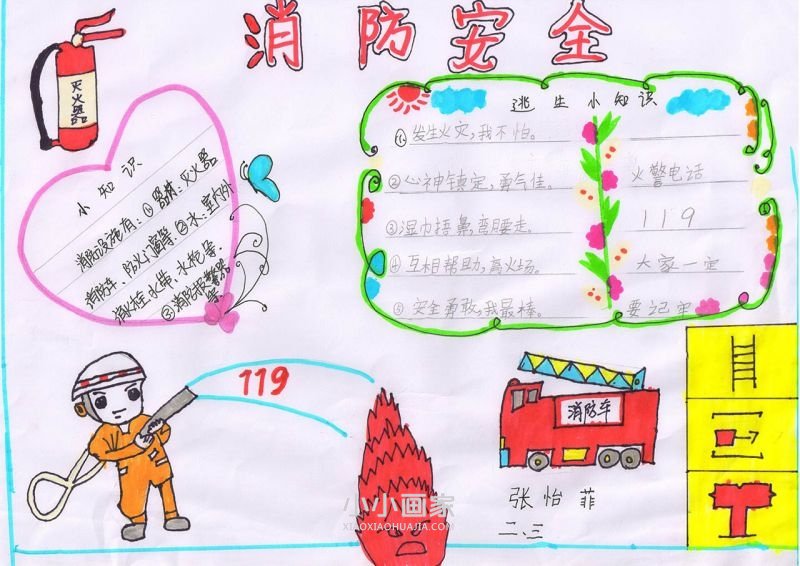 消防安全
灭火器
小知识
消防设施有：①器材：灭火器
消防车、防火门窗等。②水：室内外
消火栓、水带、水枪等。
③消防报警器
等。
逃生小知识
①发生火灾,我不怕。
②心神镇定,勇气佳。
③湿巾捂鼻,弯腰走。
④互相帮助,离火场。
⑤安全勇敢,我最棒。
火警电话
119
大家一定
要记牢
119
消防车
张怡菲
二、三
小小画家
XIAOXIAOHUAJIA.COM